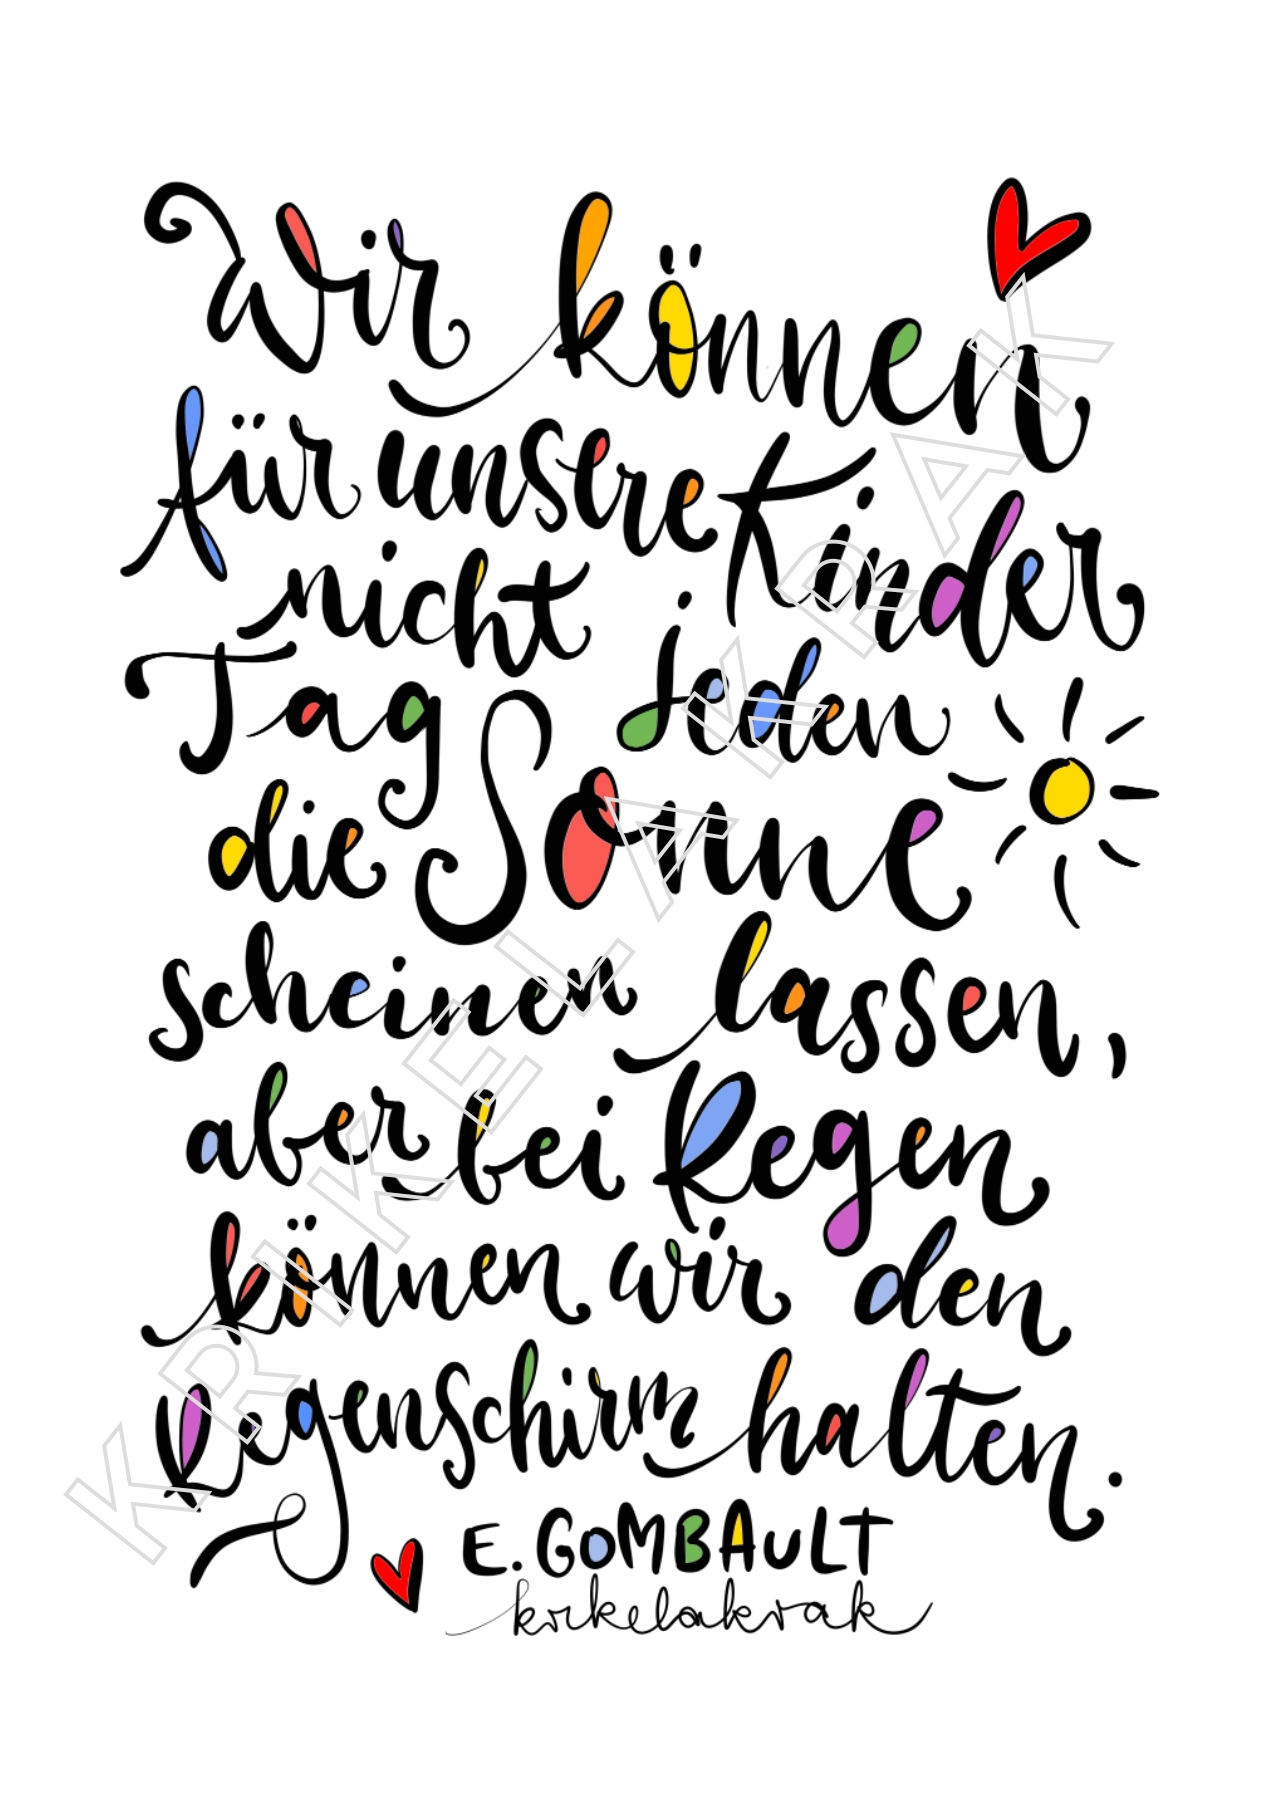 Wir können
für unsere Kinder
nicht jeden
Tag
die Sonne
scheinen lassen,
aber bei Regen
können wir den
Regenschirm halten.
E. GOMBAULT
krikelakrak
KRIKELAKRAK